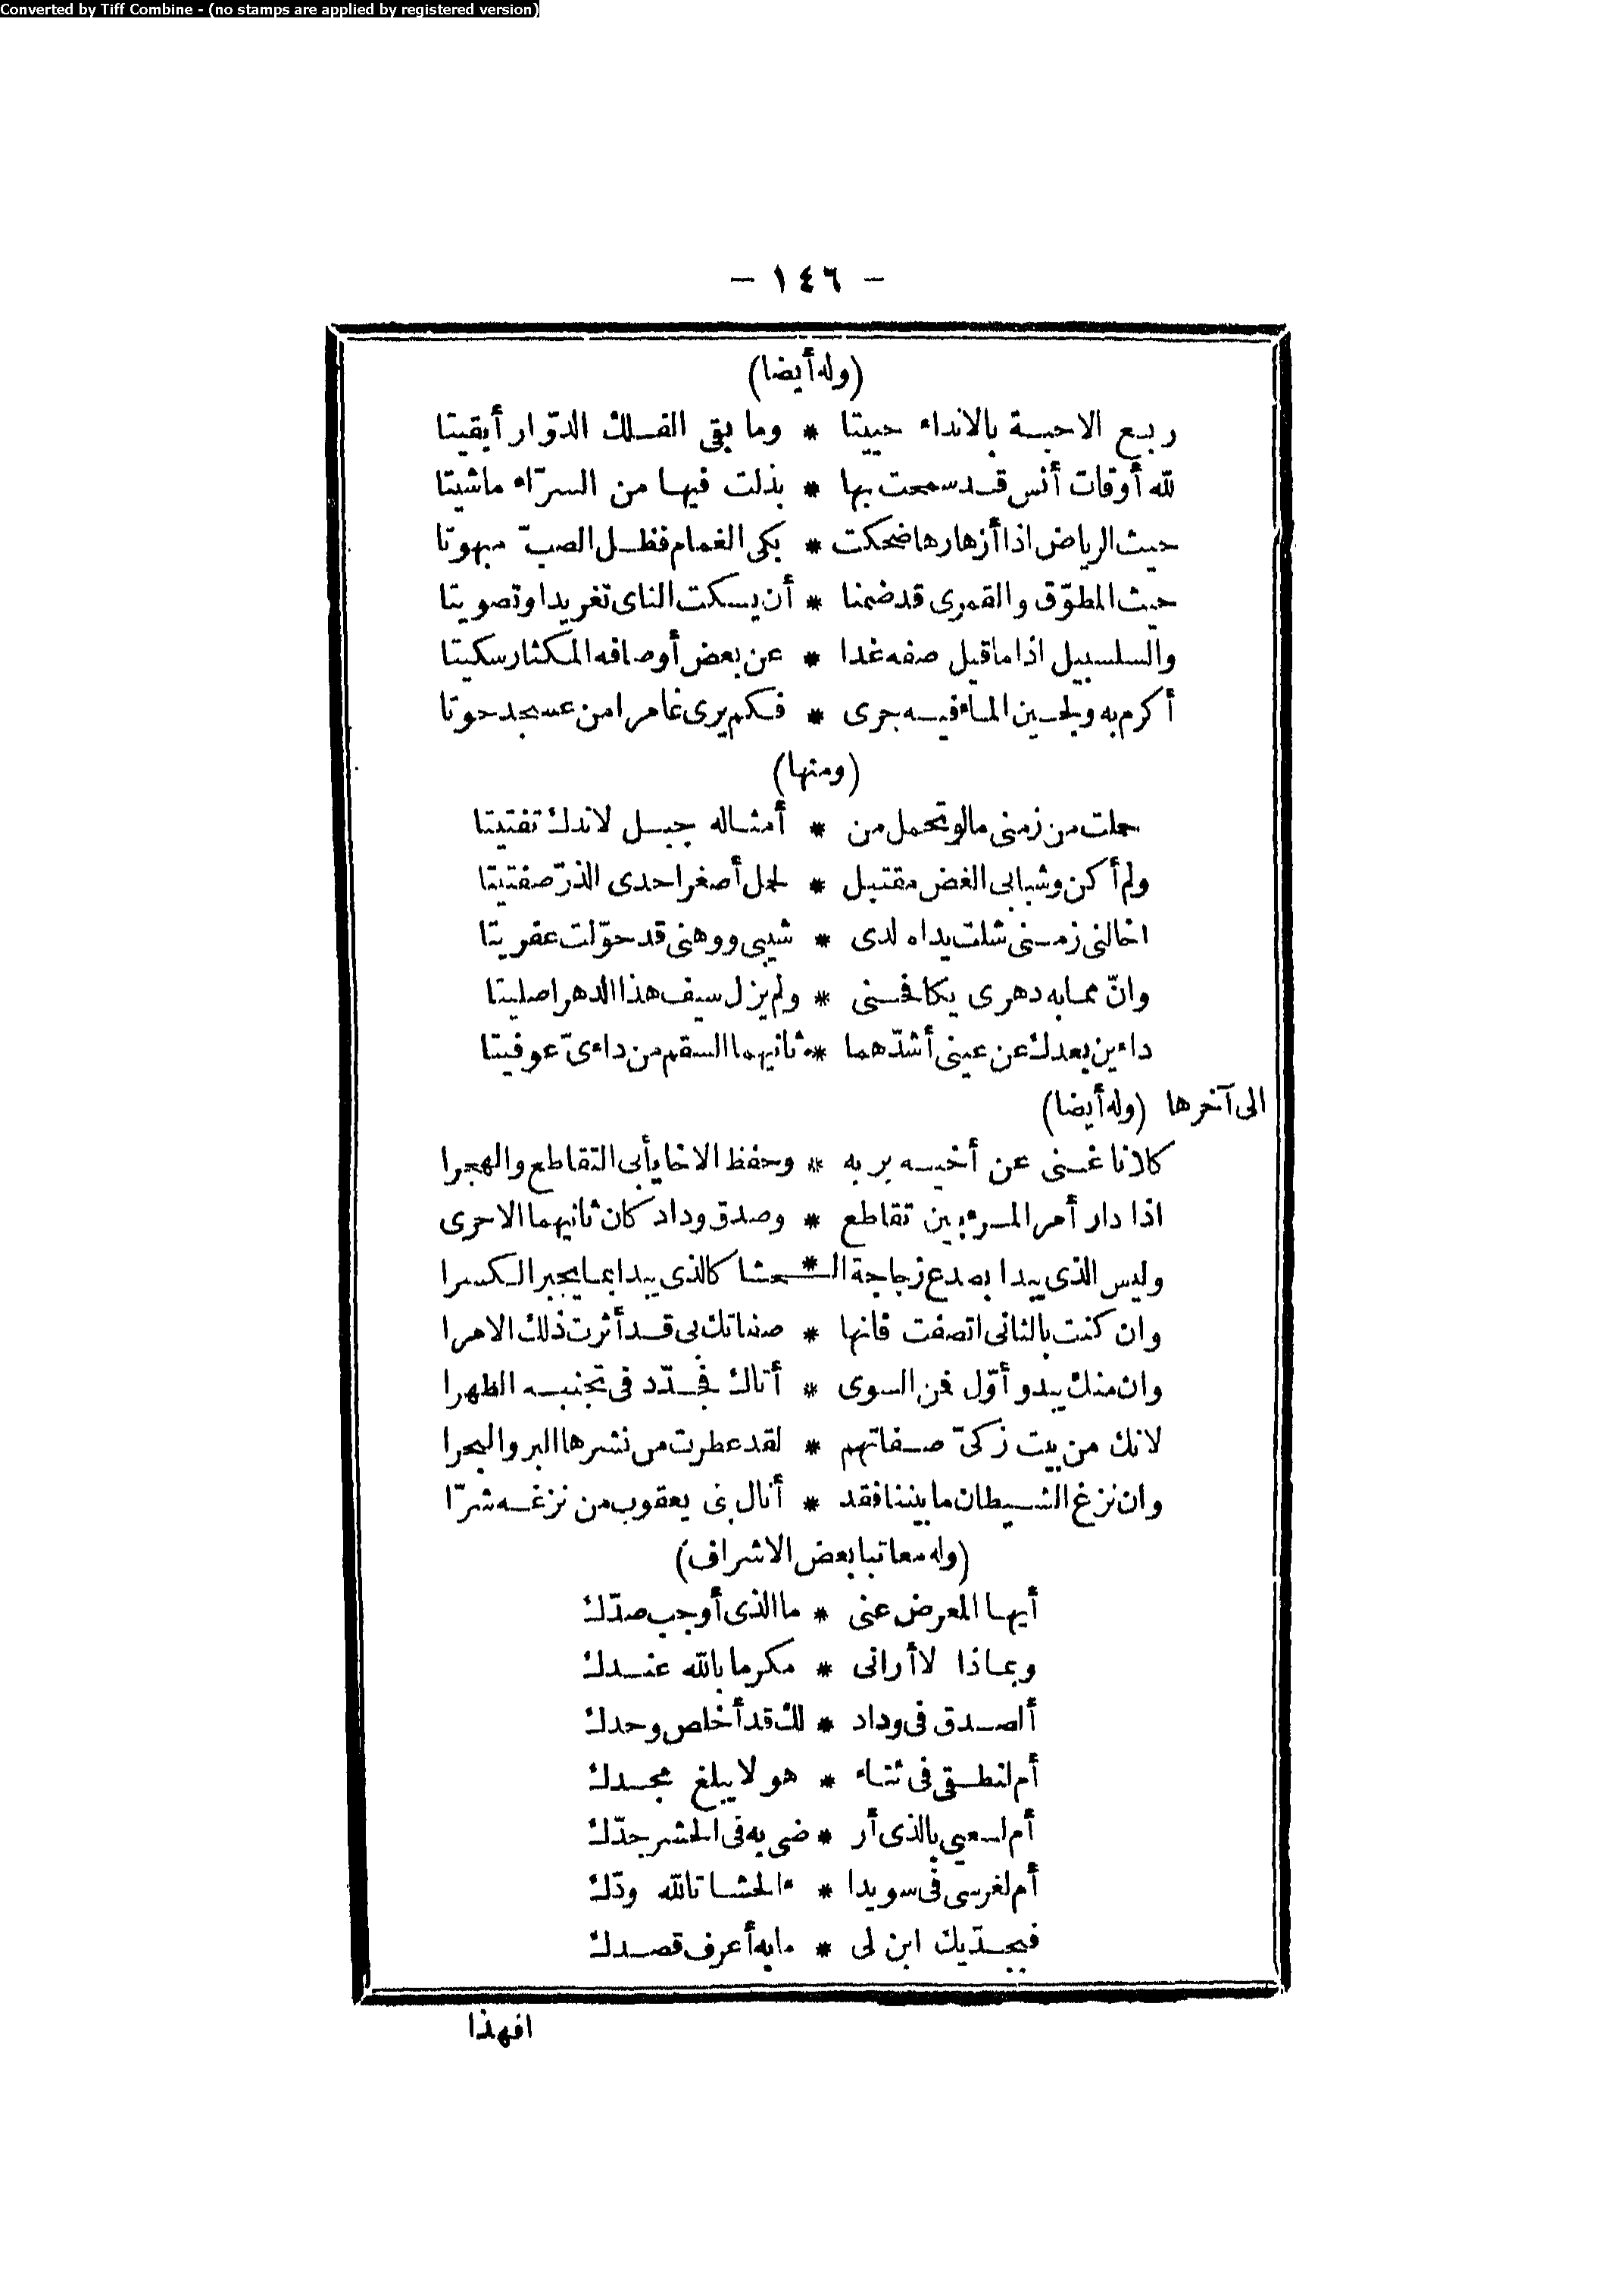 Converted by Tiff Combine - (no stamps are applied by registered version)
- ١٤٦ -
(وله أيضا)
ربع الاحبة بالانداء حييتا * وما بقى الفلك الدوّار أبقيتا
لله أوقات أنس قد سمحت بها * بذلت فيها من السرّاء ماشيتا
حيث الرياض اذا أزهارها ضحكت * بكى الغمام فظل الصبّ مبهوتا
حيث المطوّق والقمرى قد ضمنا * أن يسكت الناى تغريدا وتصويتا
والسلسبيل اذا ما قيل صفه غدا * عن بعض أوصافه المكثار سكيتا
أكرم به ولجين الماء فيه جرى * فكم يرى غامرا من عسجد حوتا
(ومنها)
حملت من زمنى مالو تحمل من * أمثاله جبل لاندك تفتيتا
ولم أكن وشبابى الغض مقتبل * لحمل أصغر احدى الذرّ صفتيتا
اخالنى زمنى شلت يداه لدى * شيبى ووهنى قد حوّلت عفريتا
وانّ مما به دهرى يكافحنى * ولم يزل سيف هذا الدهر اصليتا
داءين بعدك عن عينى أشدّهما * ثانيهما السقم من داءىّ عوفيتا
الى آخرها (وله أيضا)
كلانا غنى عن أخيه بربه * وحفظ الاخا يأبى التقاطع والهجرا
اذا دار أمر المرء بين تقاطع * وصدق وداد كان ثانيهما الاحرى
وليس الذى يبدا بصدع زجاجة الـ * ـحشا كالذى يبدا بما يجبر الكسرا
وان كنت بالثانى اتصفت فانها * صفاتك بى قد أثرت ذلك الامرا
وان منك يبدو أوّل فمن السوى * أتاك فجدّد فى تجنبه الظهرا
لانك من بيت زكىّ صفاتهم * لقد عطرت من نشرها البر والبحرا
وان نزغ الشيطان ما بيننا فقد * أنال بنى يعقوب من نزغه شرّا
(وله معاتبا بعض الاشراف)
أيها المعرض عنى * ما الذى أوجب صدّك
وبماذا لا أرانى * مكرما بالله عندك
ألصدق فى وداد * لك قد أخلص وحدك
أم لنطقى فى ثناء * هو لا يبلغ مجدك
أم لسعيى بالذى أر * ضى به فى الحشر جدّك
أم لغرسى فى سويدا * ء الحشا تالله ودّك
فبجدّيك ابن لى * ما به أعرف قصدك
افهذا